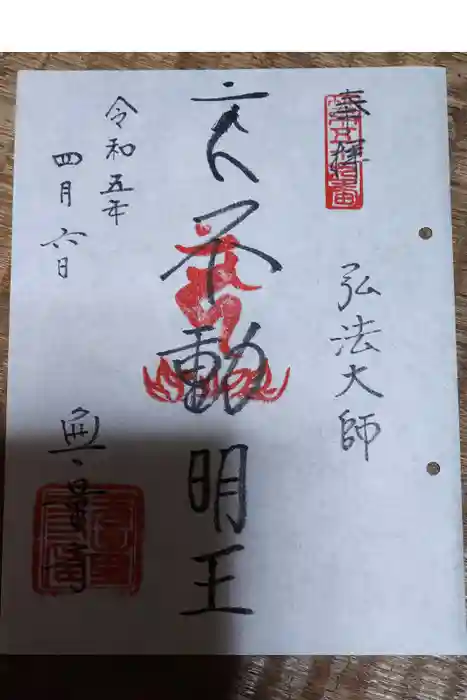 奉拝
弘法大師
不動明王
令和五年
四月六日